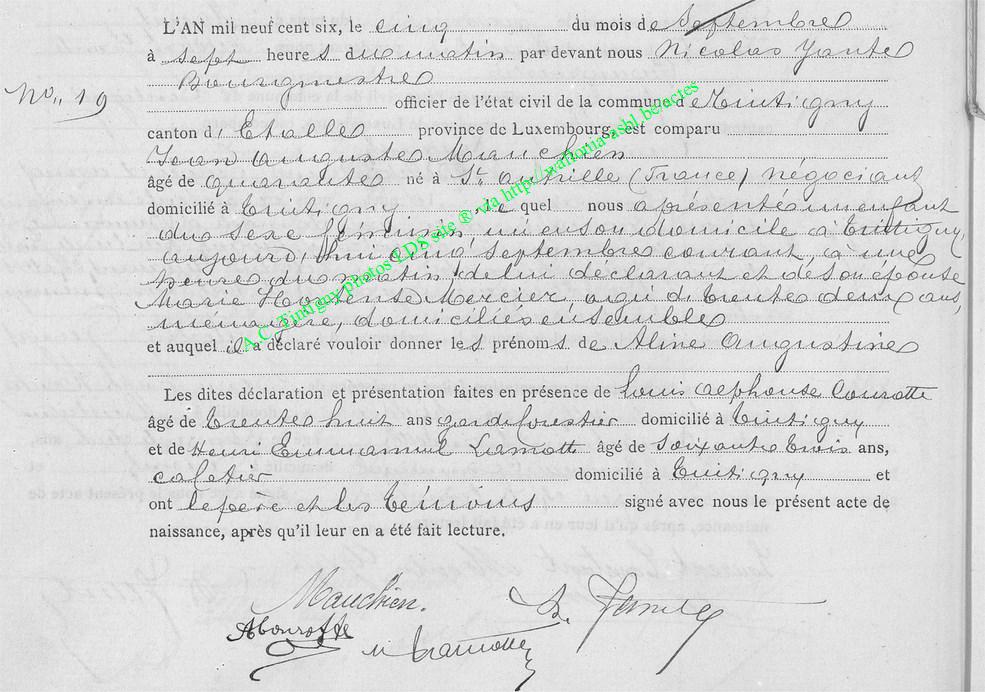 L'AN mil neuf cent six, le cinq du mois de Septembre
à sept heures du matin par devant nous Nicolas Jante
Bourgmestre
No,, 19
officier de l'état civil de la commune de Tintigny
canton d'Etalle province de Luxembourg, est comparu
Jean Auguste Mauchien
âgé de quarante né à St (France) négociant
domicilié à Tintigny le quel nous a présenté un enfant
du sexe féminin né en son domicile à Tintigny,
aujourd'hui cinq septembre courant, à une
heure du matin de lui déclarant et de son épouse
Marie Hortense Mercier, agée de trente deux ans,
ménagère, domiciliés ensemble
et auquel il a déclaré vouloir donner les prénoms de Aline Augustine
Les dites déclaration et présentation faites en présence de Louis Alphonse
âgé de trente huit ans garde forestier domicilié à Tintigny
et de Henri Emmanuel Lamotte âgé de soixante trois ans,
cafetier domicilié à Tintigny et
ont le père et les témoins signé avec nous le présent acte de
naissance, après qu'il leur en a été fait lecture.
Mauchien.
Lamotte
A.C. Tintigny photos LDS site ® via http://wallonia-asbl.be/actes